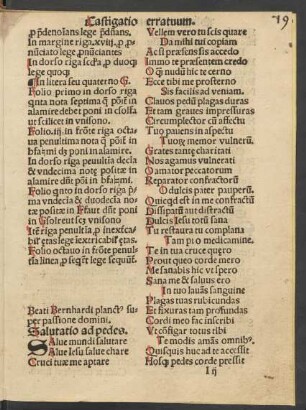 Castigatio erratuum.
19.
p p̄denoians lege p̄dñans.
In margine riga.xviij. p p̄-
nūciato lege .pnūciantes
In dorso riga sc̄da. p duoqȝ
lege quoqȝ
In litera seu quaterno G.
Folio primo in dorso riga
qnta nota septima q̄ poīt in
alamire debet poni in csolfa
ut scilicet in vnisono.
Folio.iij. in frōte riga octa-
ua penultima nota q̄ poīt in
bfaȝmi dȝ poni in alamire.
In dorso riga peuultia decīa
& vndecima notę positae in
alamire dn̄t poīt in bfaȝmi
Folio qnto in dorso riga p̄-
ma vndecīa & duodecīa no-
tae positae in Ffaut dn̄t poni
in Gsolreut sȝ vnisono
Itē riga penultīa. p inextca-
bil' ętas lege iextricabil' ętas.
Folio octauo in frōte penul-
tia linea .p seqr̄et lege sequūt.
Beati Bernhardi planct' su-
per passione domini.
Salutatio ad pedes.
SAlue mundi salutare
Salue Iesu salue chare
Cruci tuae me aptare
Vellem vero tu scis quare
Da mihi tui copiam
Ac si praesens sis accedo
Immo te praesentem credo
O q̄ nudū hic te cerno
Ecce tibi me prosterno
Sis facilis ad veniam.
Clauos pedū plagas duras
Et tam graues impressuras
Circumplector cū affectu
Tuo pauens in aspectu
Tuorȝ memor vulnerū.
Grates tantę charitati
Nos agamus vulnerati
O amator peccatorum
Reparator confractorū
O dulcis pater pauperū.
Quicqd est in me confractū
Dissipatū aut distractū
Dulcis Iesu totū sana
Tu restaura tu complana
Tam pio medicamine.
Te in tua cruce quero
Prout queo corde mero
Me sanabis hic vt spero
Sana me & saluus ero
In tuo lauās sanguine
Plagas tuas rubicundas
Et fixuras tam profundas
Cordi meo fac inscribi
Vt cōfigar totus tibi
Te modis amās omnibȝ.
Quisquis huc ad te accessit
Hosqȝ pedes corde pressit
I ij